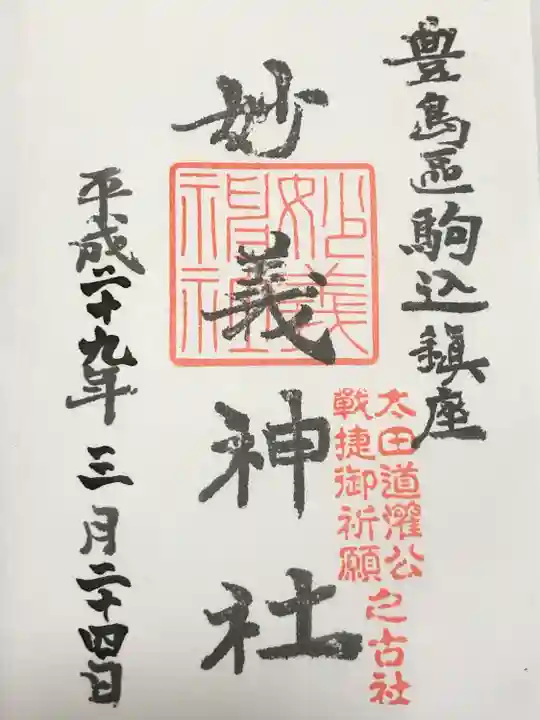 豊島區駒込鎮座
太田道灌公
戰捷御祈願
之古社
妙義神社
妙義
神社
平成二十九年三月二十四日